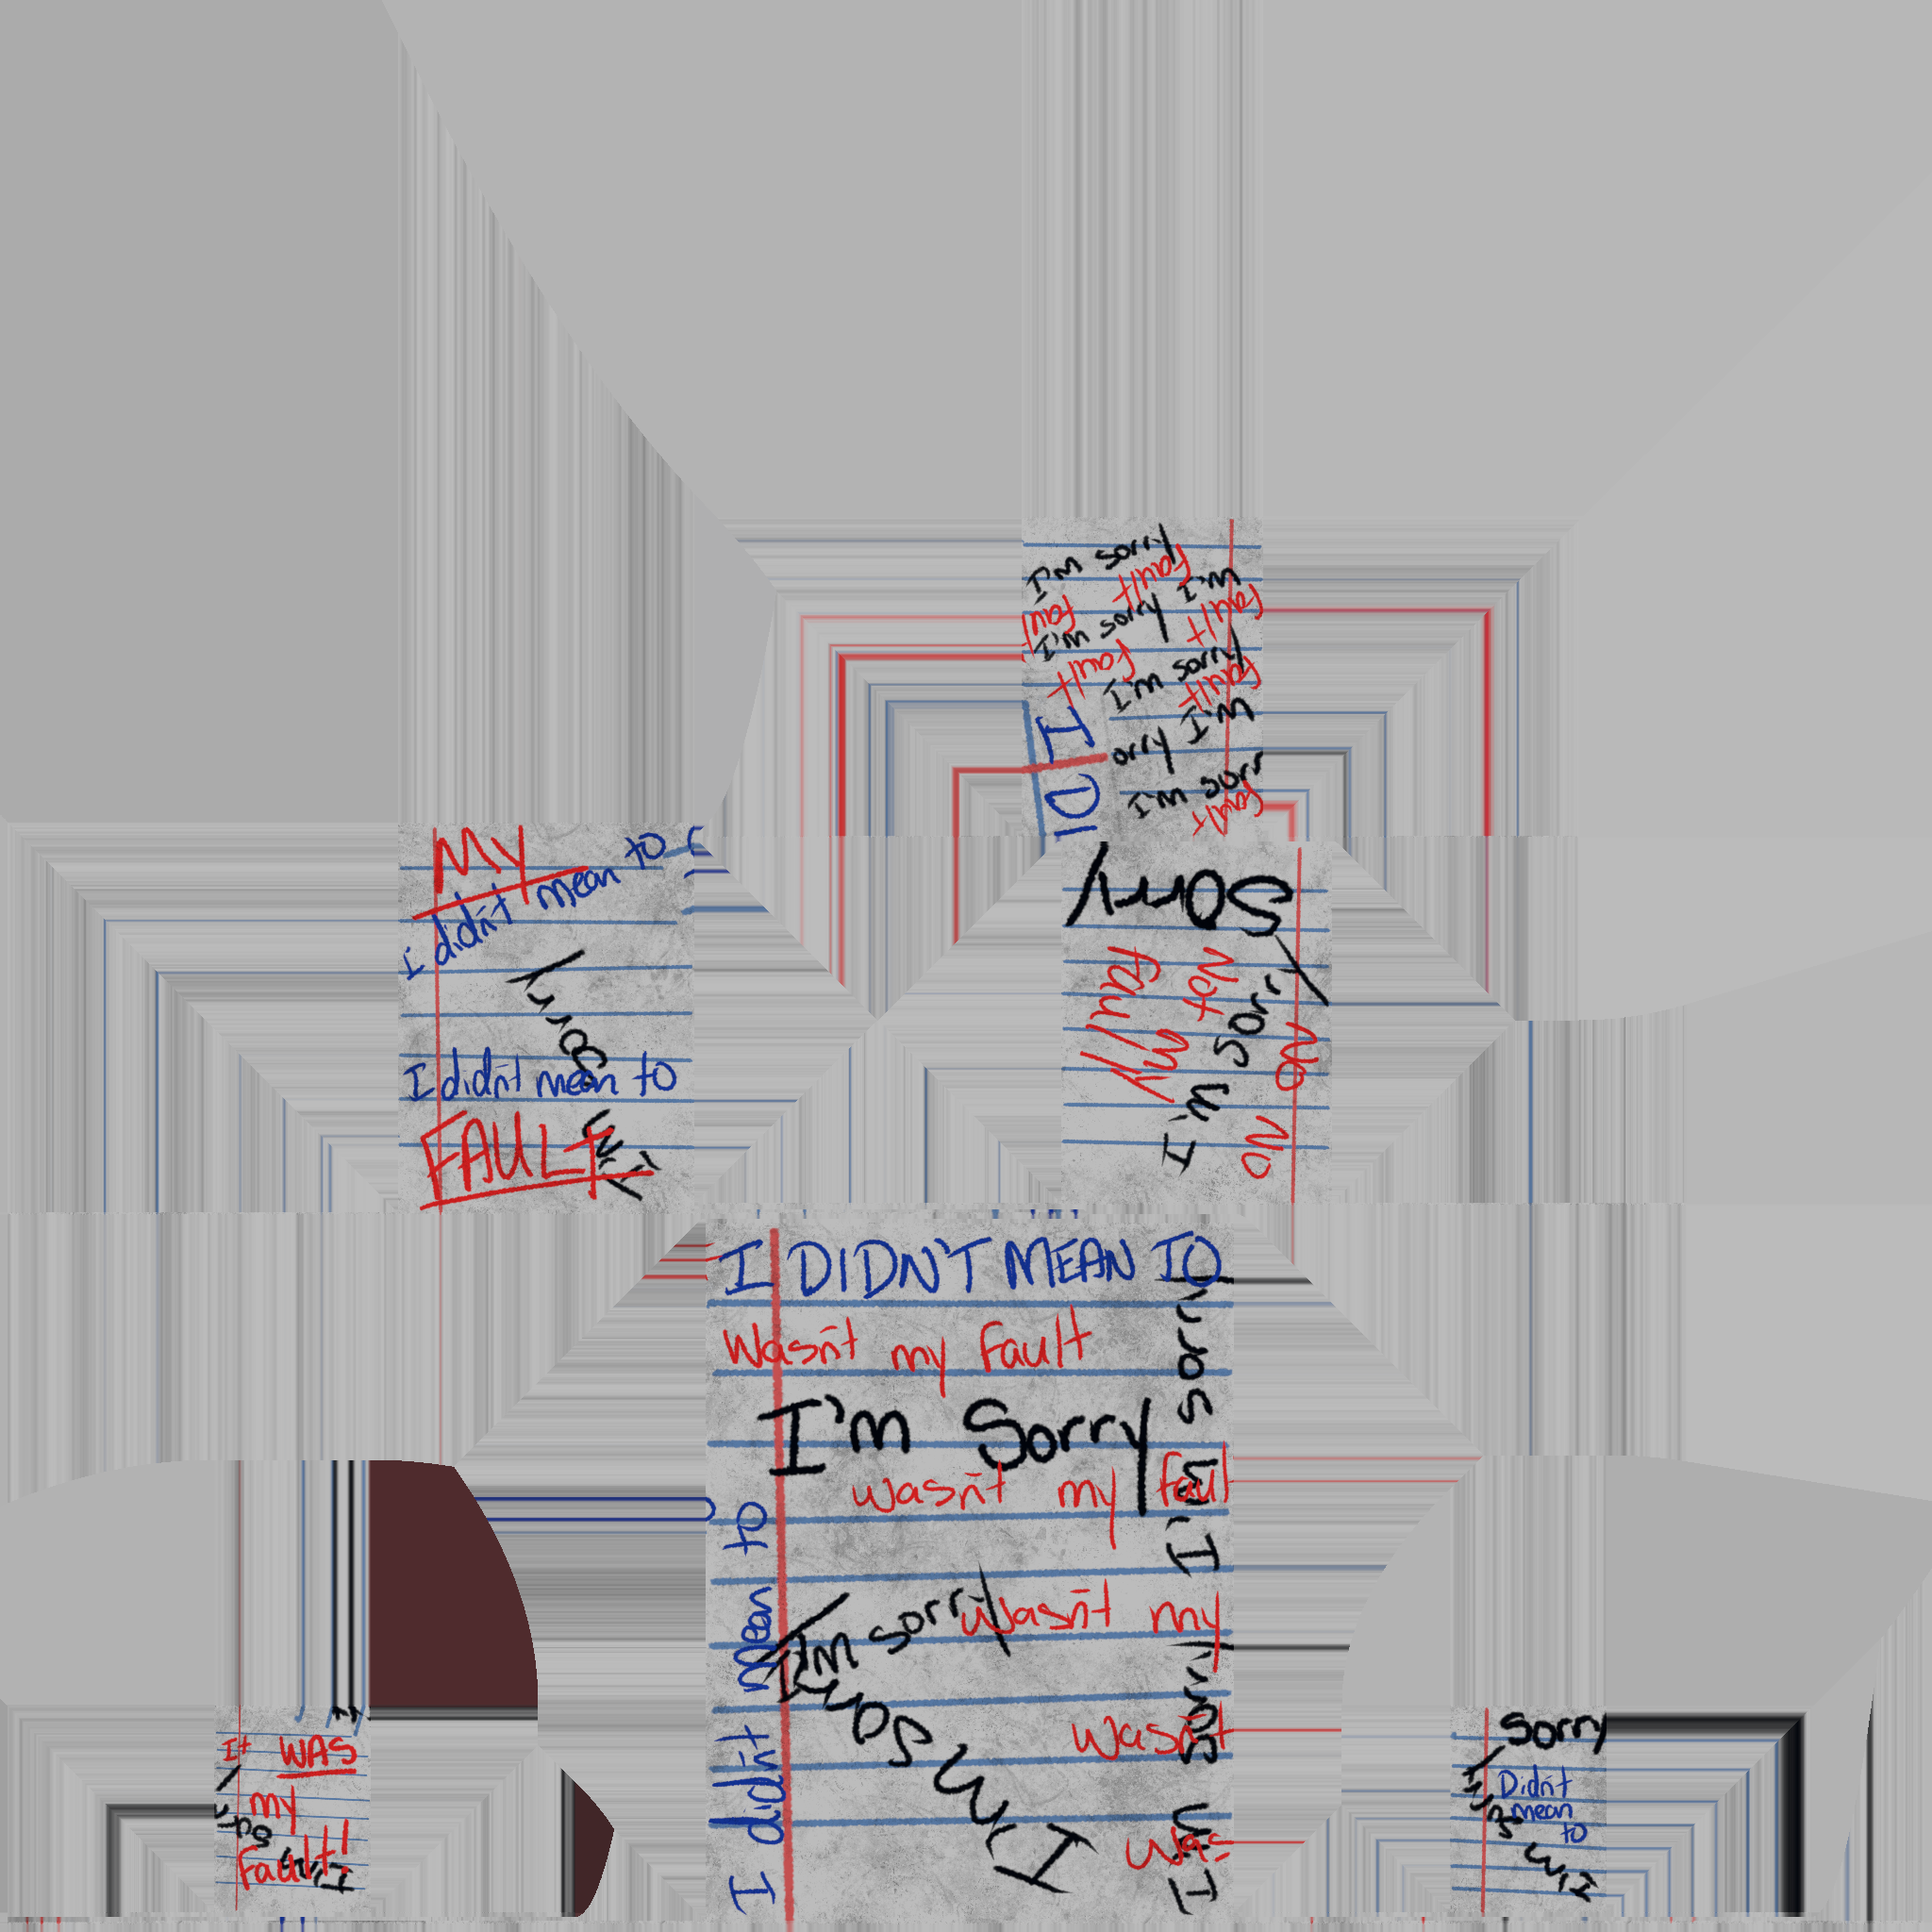 I'm sorry
fault
fault I'm sorry I'm
fault
fault I'm sorry
fault
I orry I'm
DI I'm sorr
fault
MY
I didn't mean to
Sorry
I'm
I didn't mean to
FAULT
Sorry
Not
my
fault
I'm sorry
No
No
I DIDN'T MEAN TO
Wasn't my fault
I'm Sorry
wasn't my faul
I'm sorry
Wasn't my
Wasn't
Was
I'm sorry
I didn't mean to
I'm sorry
I'm sorry
It WAS
my
Fault!
I'm sorry
Sorry
Didn't
mean
to
I'm sorry